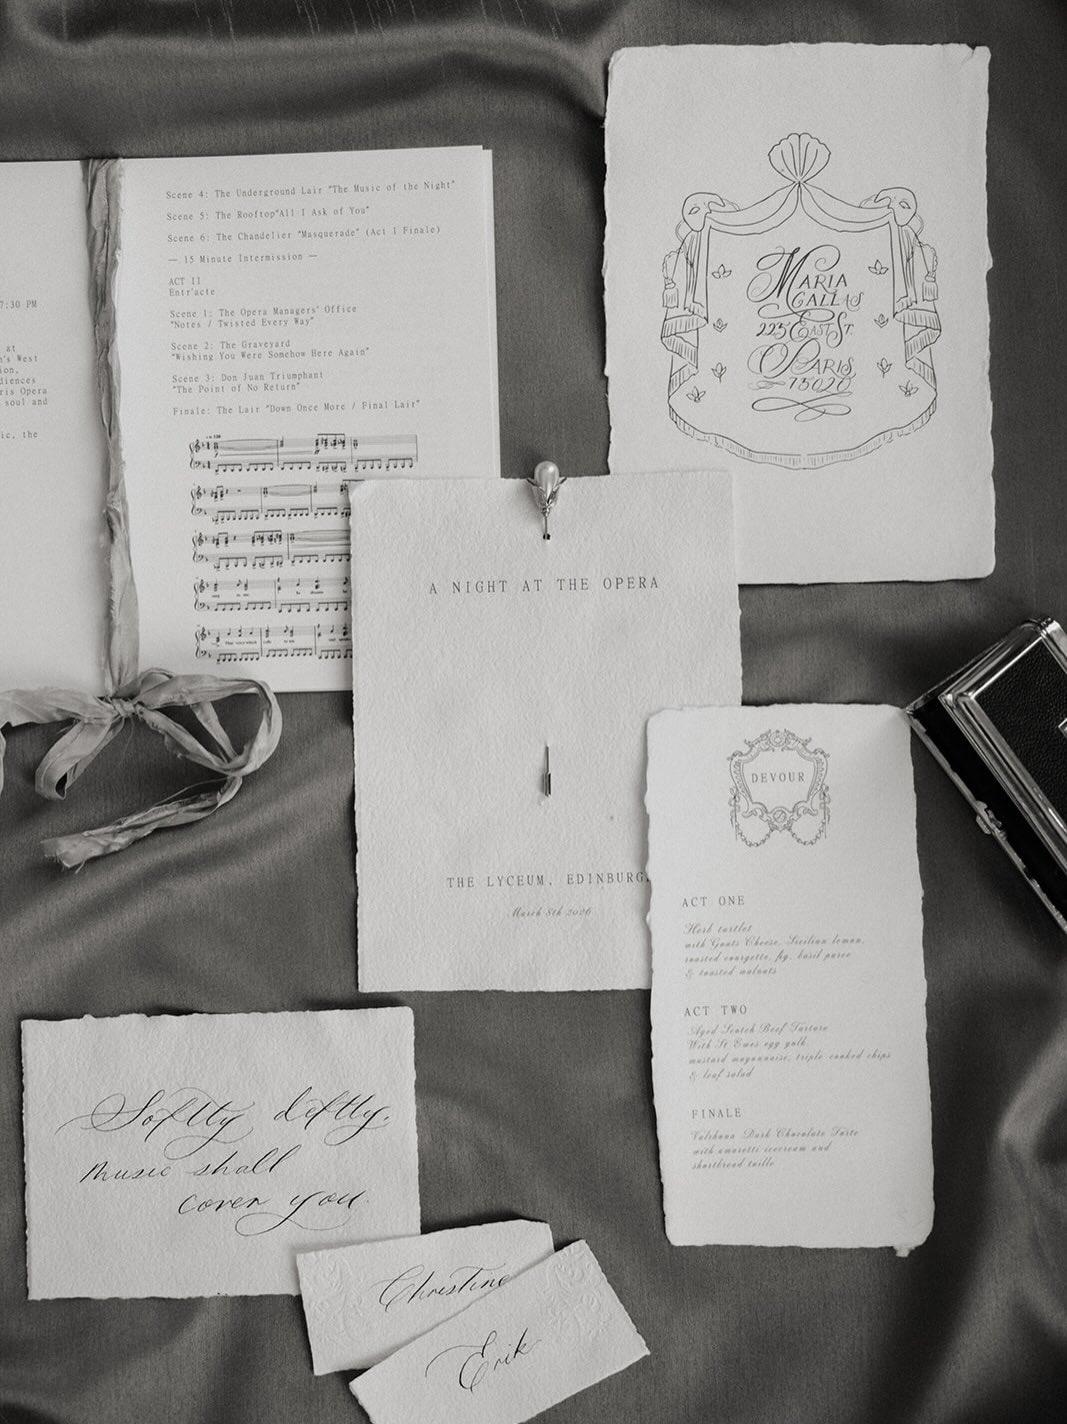 7:30 PM
at
n's West
ion,
diences
ris Opera
soul and
ic, the
Scene 4: The Underground Lair "The Music of the Night"
Scene 5: The Rooftop"All I Ask of You"
Scene 6: The Chandelier "Masquerade" (Act I Finale)
— 15 Minute Intermission —
ACT II
Entr'acte
Scene 1: The Opera Managers' Office
"Notes / Twisted Every Way"
Scene 2: The Graveyard
"Wishing You Were Somehow Here Again"
Scene 3: Don Juan Triumphant
"The Point of No Return"
Finale: The Lair "Down Once More / Final Lair"
MARIA
CALLAS
225 EAST ST.
PARIS
75020
A NIGHT AT THE OPERA
THE LYCEUM, EDINBURG
March 8th 2026
DEVOUR
ACT ONE
Herb tartlet
with Goats Cheese, Sicilian lemon,
roasted courgette, fig, basil puree
& toasted walnuts
ACT TWO
Aged Scotch Beef Tartare
With St Ewes egg yolk,
mustard mayonnaise, triple cooked chips
& leaf salad
FINALE
Valrhona Dark Chocolate Tarte
with amaretti icecream and
shortbread tuille
Softly deftly,
music shall
cover you
Christine
Erik